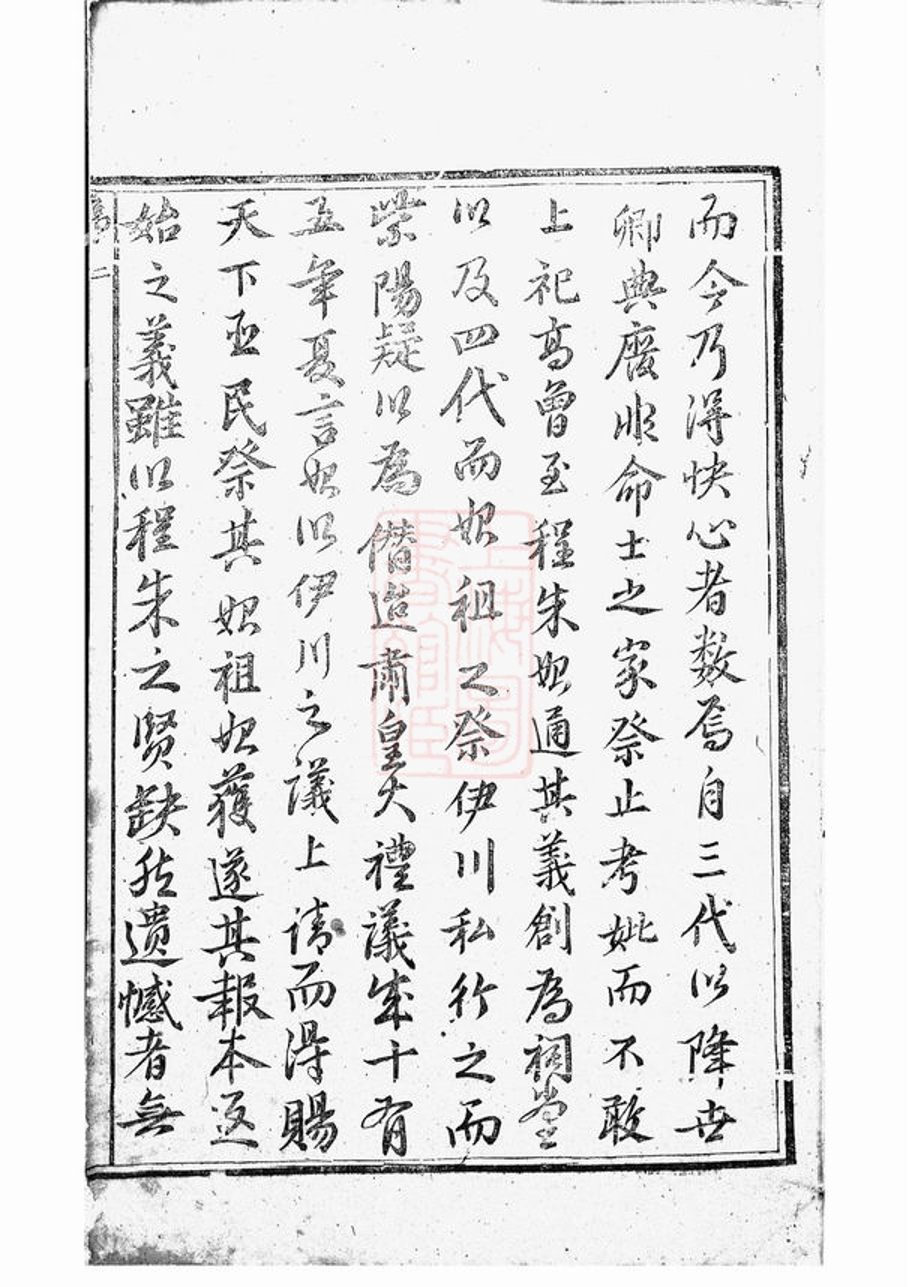 而今乃得快心者数焉自三代以降世
卿典廢非命士之家祭止考妣而不敢
上祀高曾至程朱始通其義創為祠堂
以及四代而始祖之祭伊川私行之而
紫陽疑以為僭迨肅皇大禮議成十有
五年夏言始以伊川之議上請而得賜
天下臣民祭其始祖始獲遂其報本返
始之義雖以程朱之賢缺然遺憾者無
二